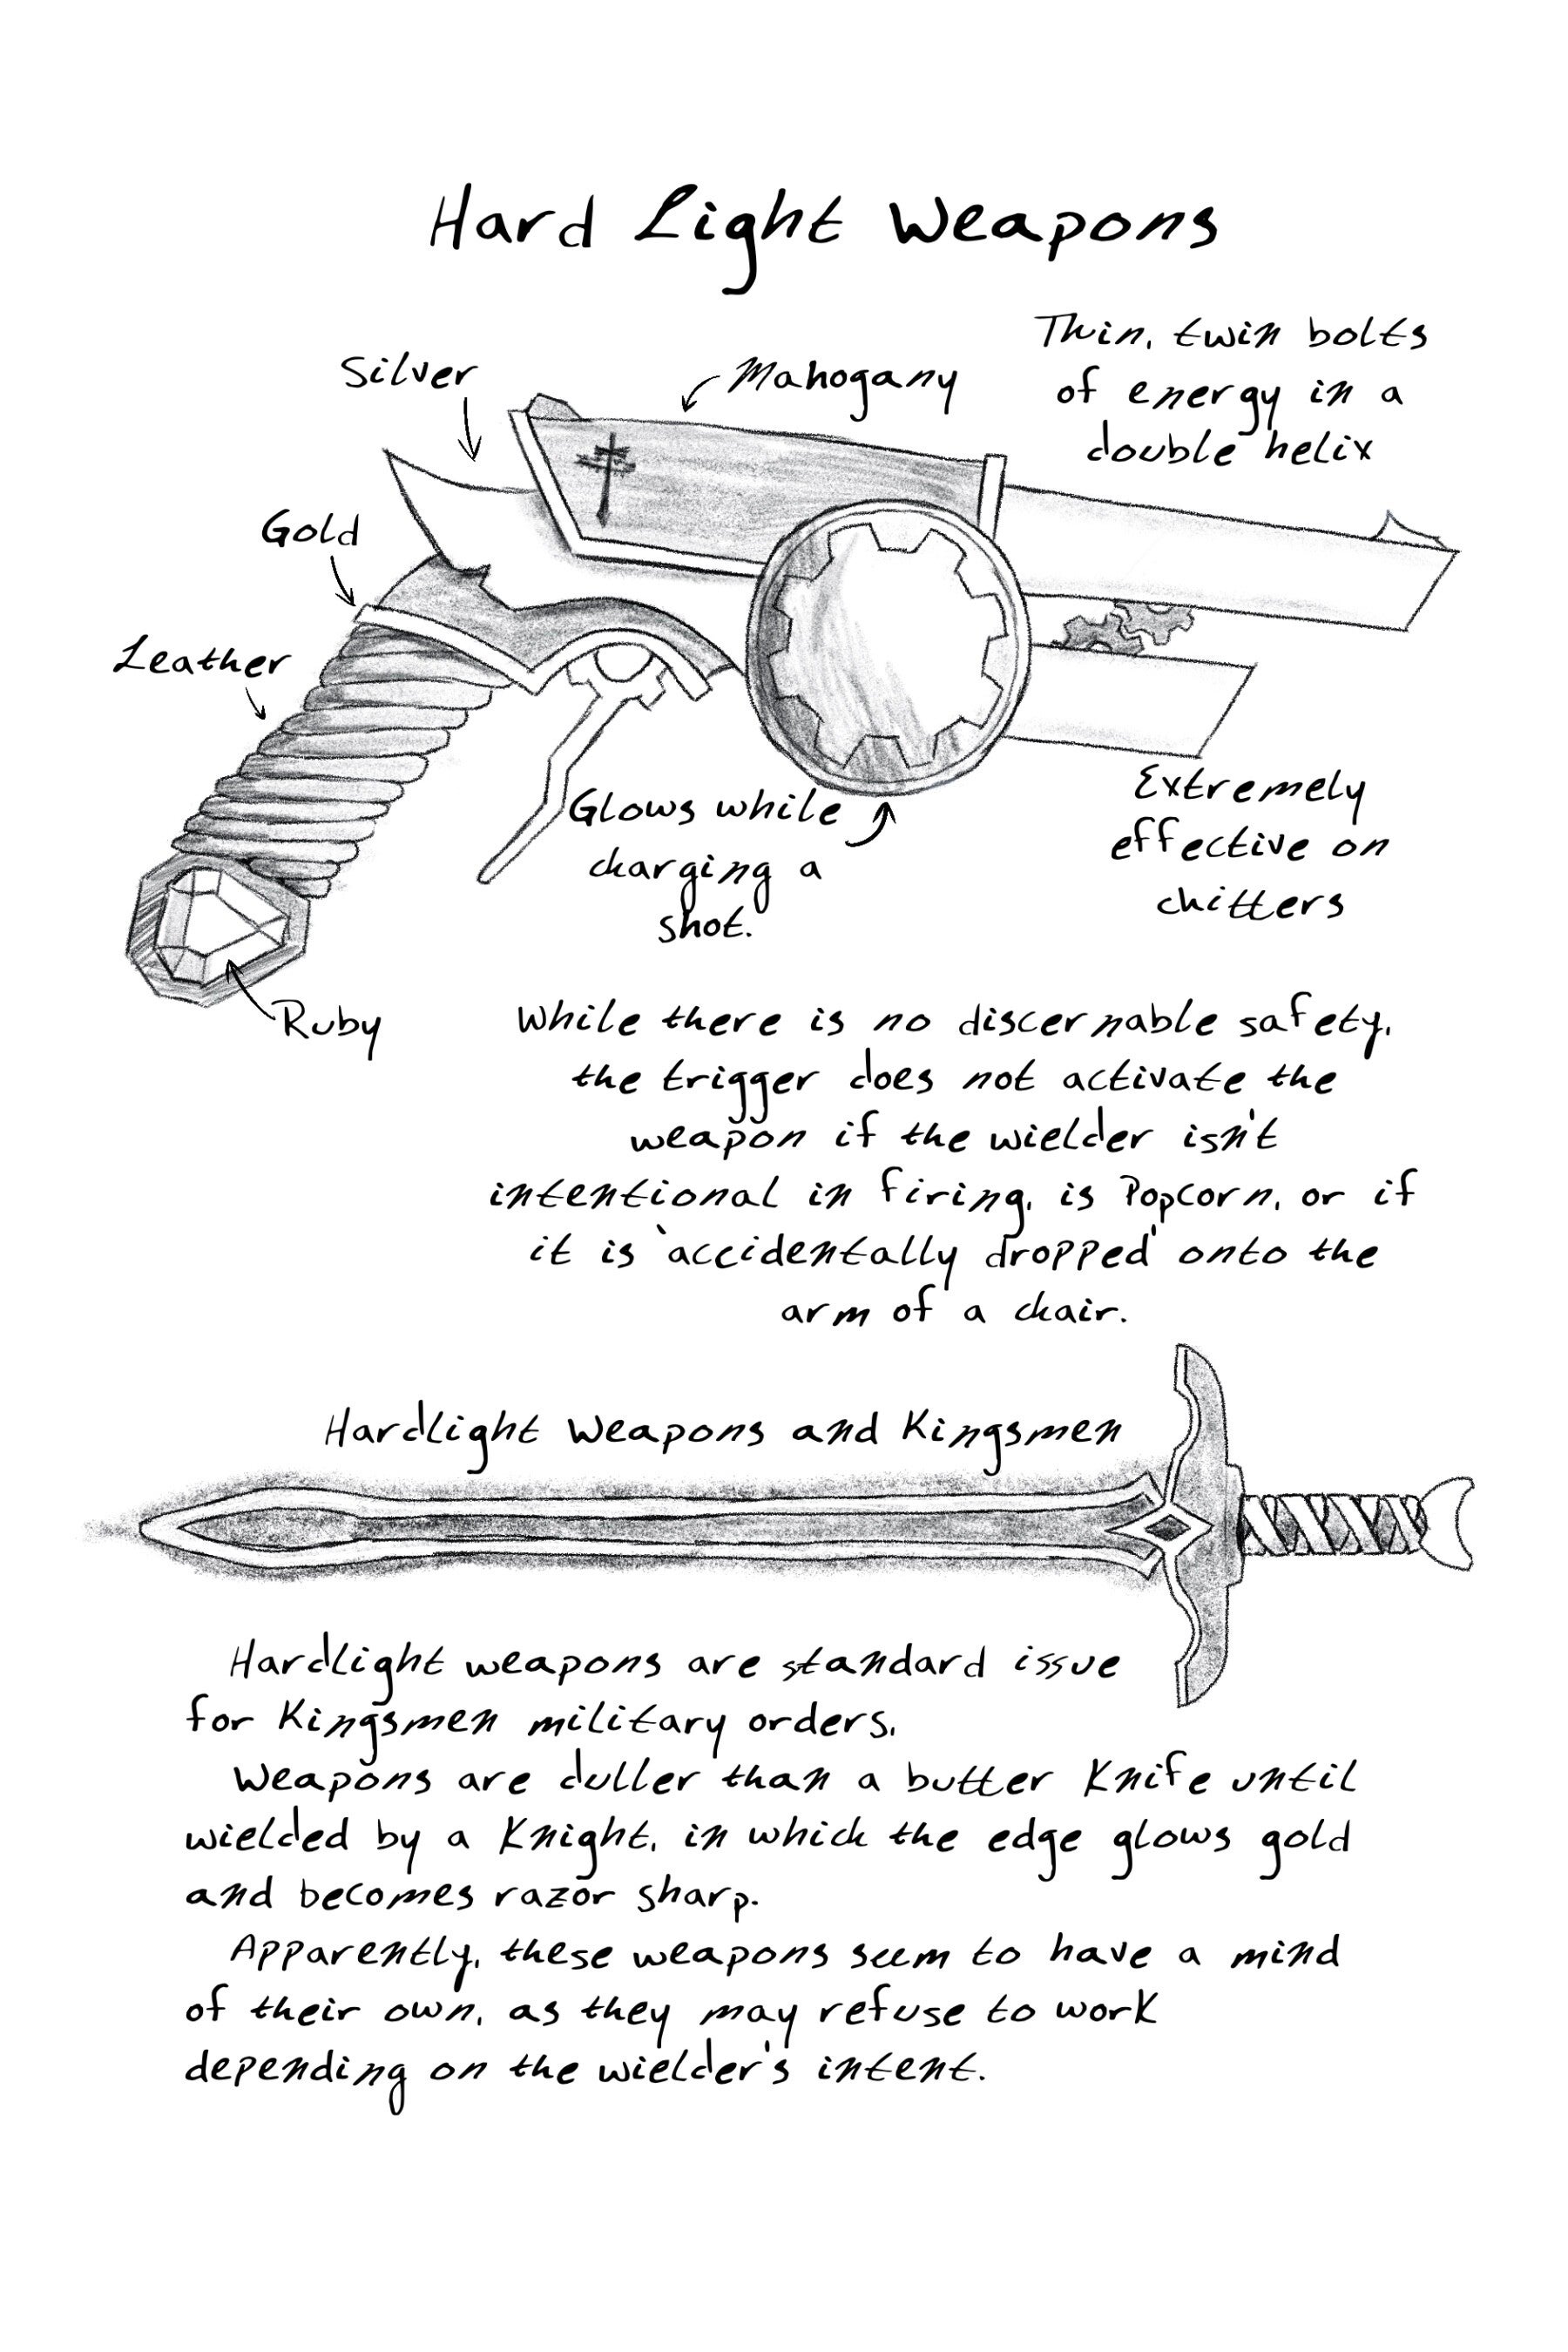 Hard Light Weapons
Thin, twin bolts
of energy in a
double helix
Silver
Mahogany
Gold
Leather
Glows while
charging a
shot.
Extremely
effective on
chitters
Ruby
While there is no discernable safety,
the trigger does not activate the
weapon if the wielder isn't
intentional in firing, is Popcorn, or if
it is 'accidentally dropped' onto the
arm of a chair.
Hardlight Weapons and Kingsmen
Hardlight weapons are standard issue
for Kingsmen military orders.
Weapons are duller than a butter knife until
wielded by a Knight, in which the edge glows gold
and becomes razor sharp.
Apparently, these weapons seem to have a mind
of their own, as they may refuse to work
depending on the wielder's intent.